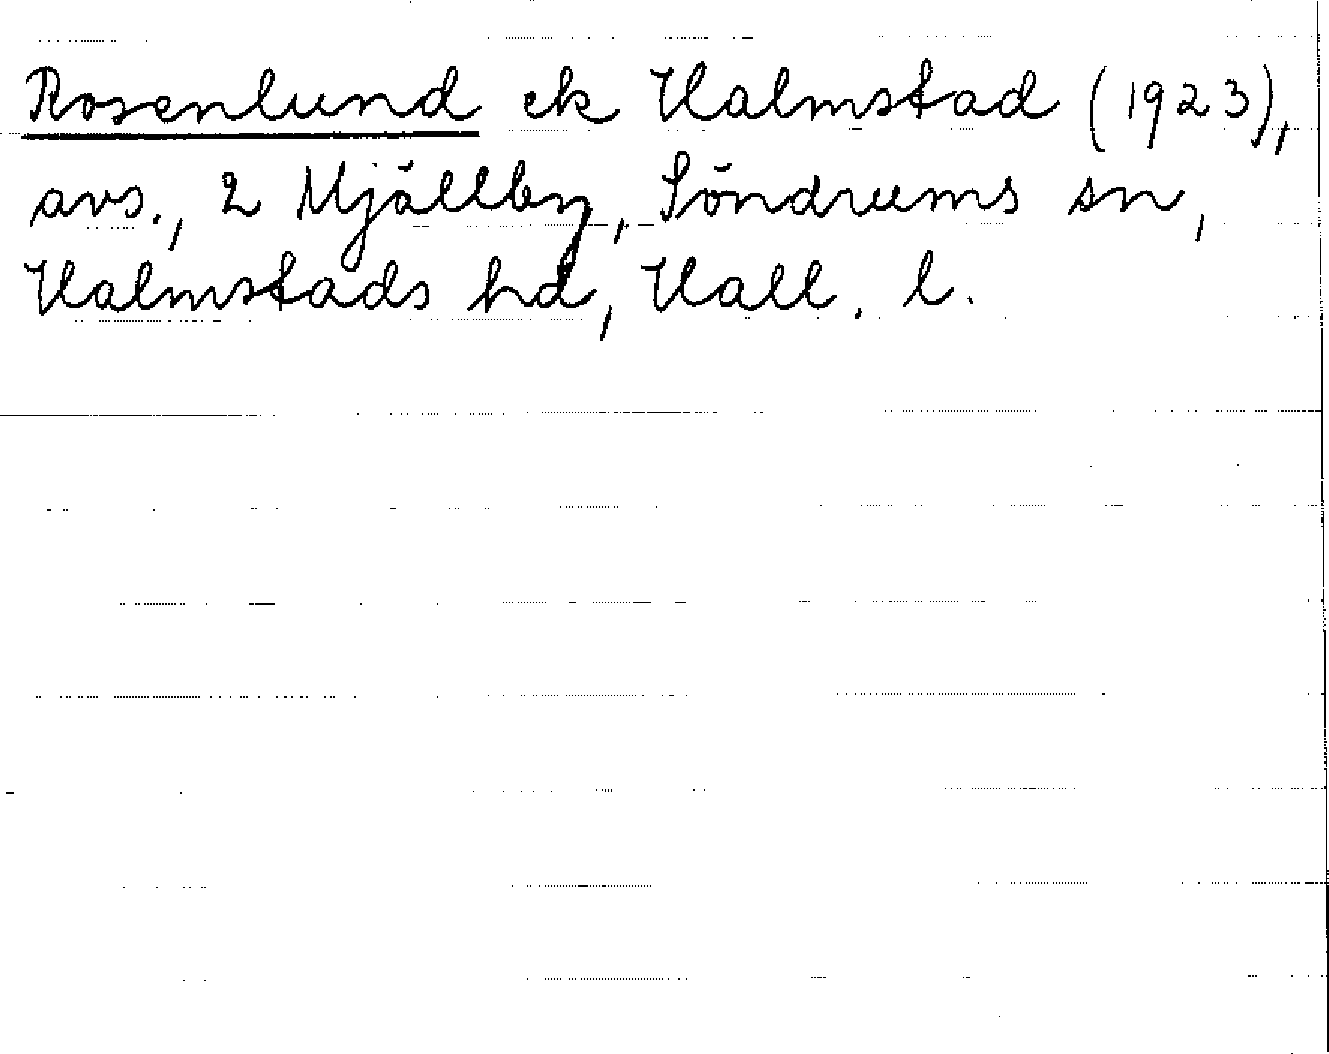 Rosenlund ek Halmstad (1923),
avs., 2 Mjällby, Söndrums sn,
Halmstads hd, Hall. l.